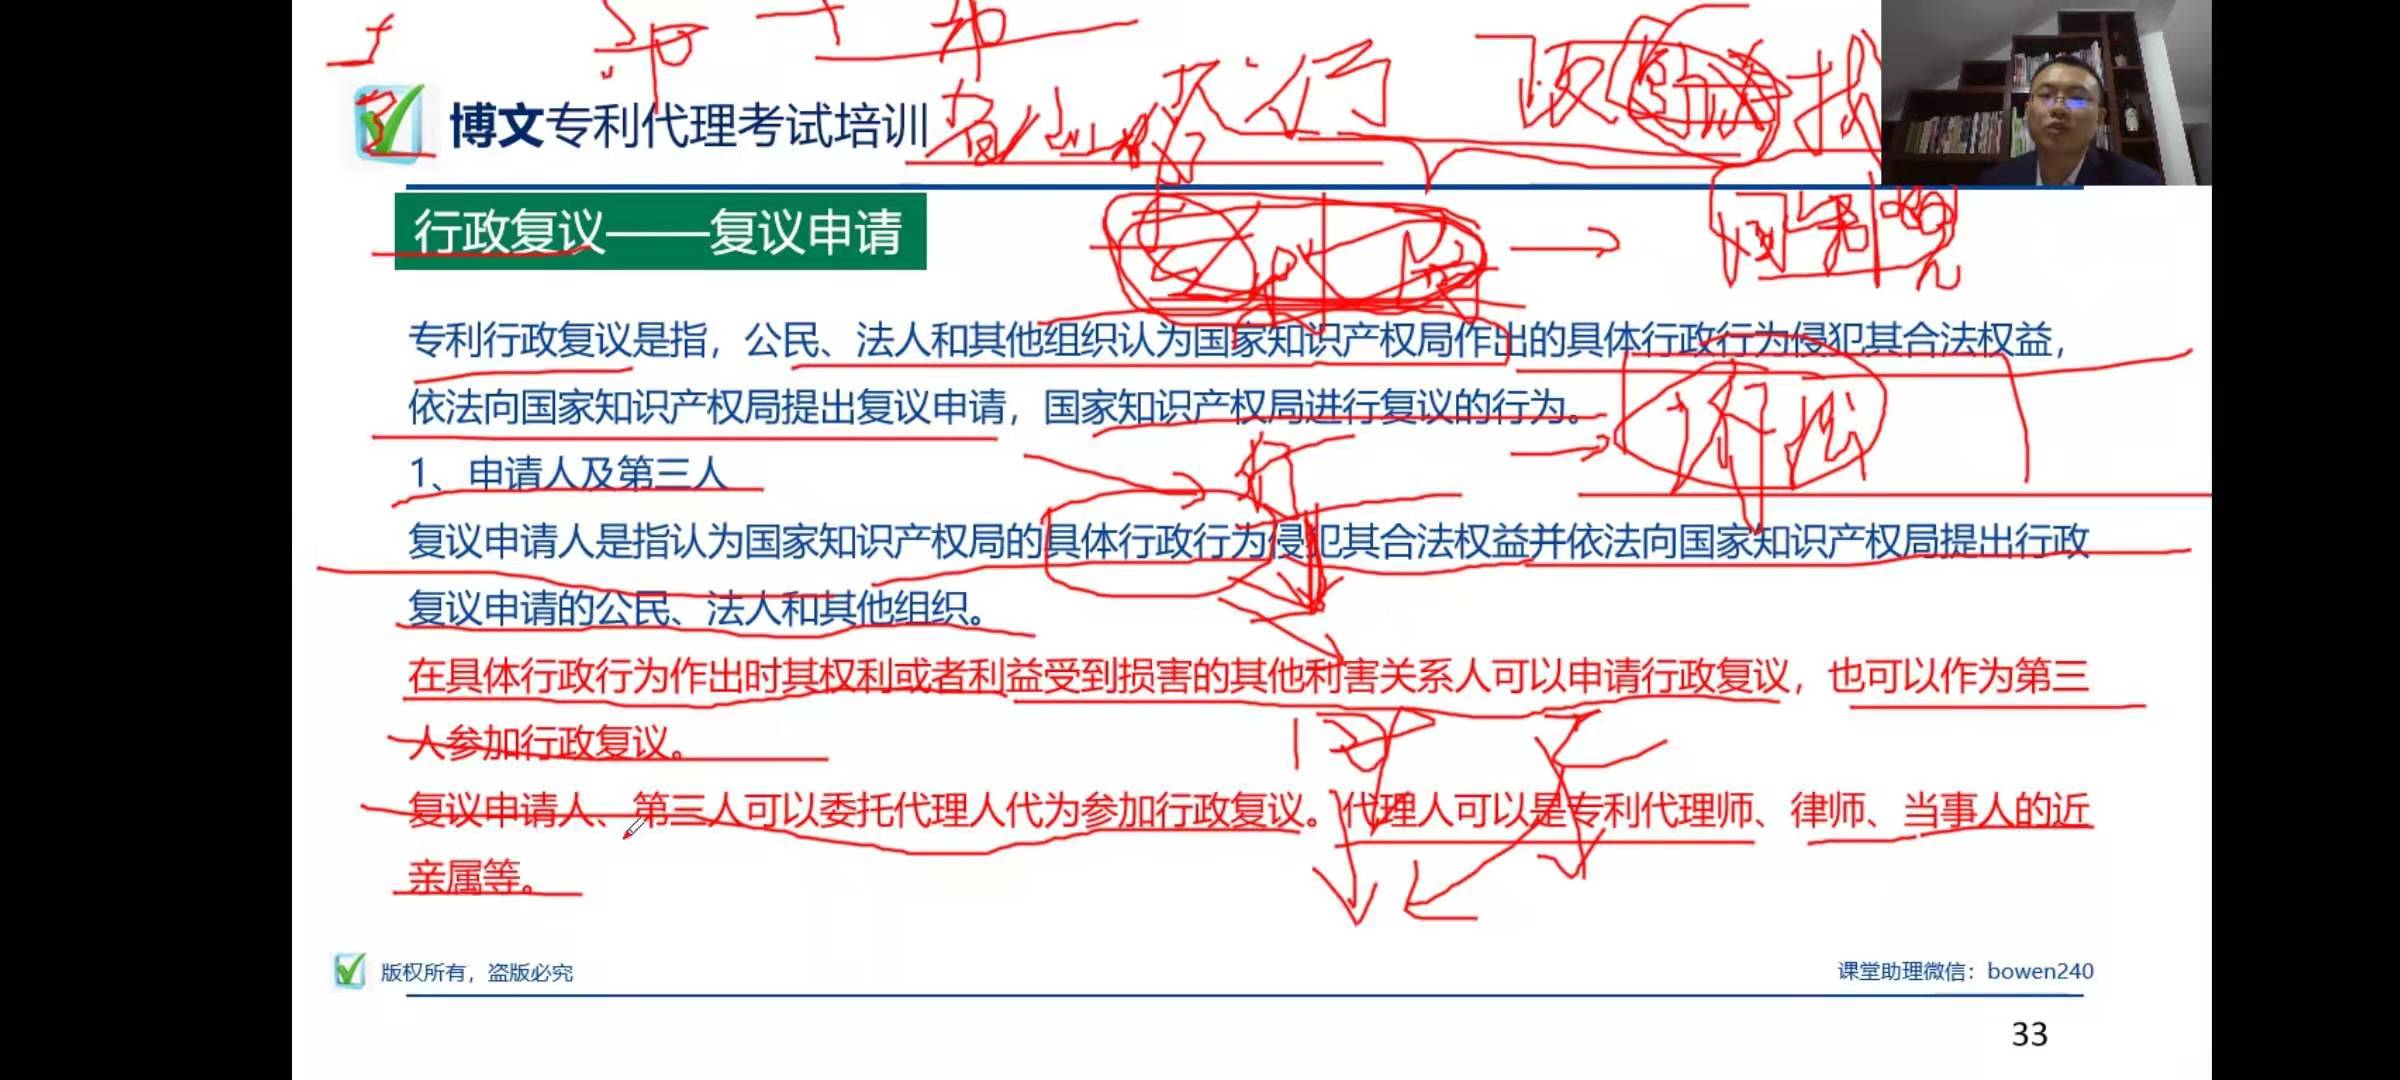 博文专利代理考试培训
行政复议——复议申请
专利行政复议是指，公民、法人和其他组织认为国家知识产权局作出的具体行政行为侵犯其合法权益，
依法向国家知识产权局提出复议申请，国家知识产权局进行复议的行为。
1、申请人及第三人
复议申请人是指认为国家知识产权局的具体行政行为侵犯其合法权益并依法向国家知识产权局提出行政
复议申请的公民、法人和其他组织。
在具体行政行为作出时其权利或者利益受到损害的其他利害关系人可以申请行政复议，也可以作为第三
人参加行政复议。
复议申请人、第三人可以委托代理人代为参加行政复议。代理人可以是专利代理师、律师、当事人的近
亲属等。
版权所有，盗版必究
课堂助理微信：bowen240
33